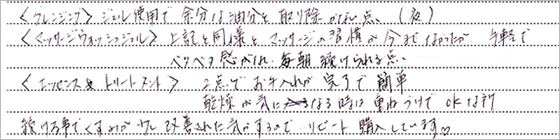 <クレンジング> ジェル使用で余分な油分を取り除かない点。(夜)
<マッサージウォッシュジェル> 上記と同様とマッサージの習慣が今までなかったが 手軽で
ベタベタ感がなく、毎朝続けられる点。
<エッセンス&トリートメント> 2点でお手入れが完了で簡単
乾燥が気になる時は重ねづけでOKな所
続ける事でくすみが少し改善された気がするので リピート購入しています♡